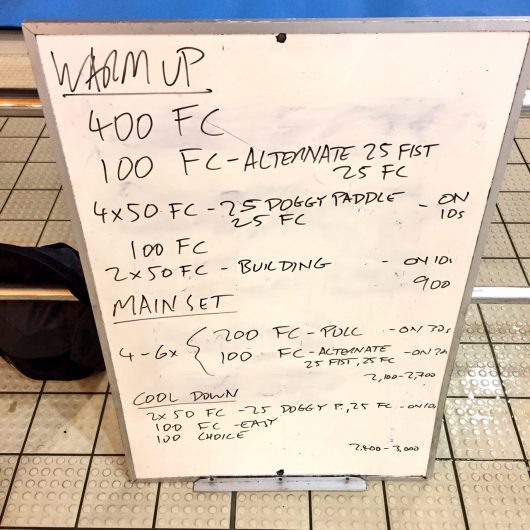 WARM UP
400 FC
100 FC - ALTERNATE 25 FIST
25 FC
4x50 FC - 25 DOGGY PADDLE - ON
25 FC 10s
100 FC
2x50 FC - BUILDING - ON 10s
900
MAIN SET
4-6x { 200 FC - PULL - ON 30s
100 FC - ALTERNATE - ON
25 FIST, 25 FC
2,100-2,700
COOL DOWN
2x50 FC - 25 DOGGY P, 25 FC - ON 10s
100 FC - EASY
100 CHOICE
2,400-3,000